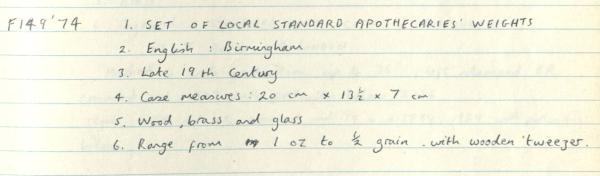 F149'74 1. SET OF LOCAL STANDARD APOTHECARIES' WEIGHTS
2. English : Birmingham
3. Late 19th Century
4. Case measures : 20 cm x 13½ x 7 cm
5. Wood, brass and glass
6. Range from 1 oz to ½ grain . with wooden tweezer.